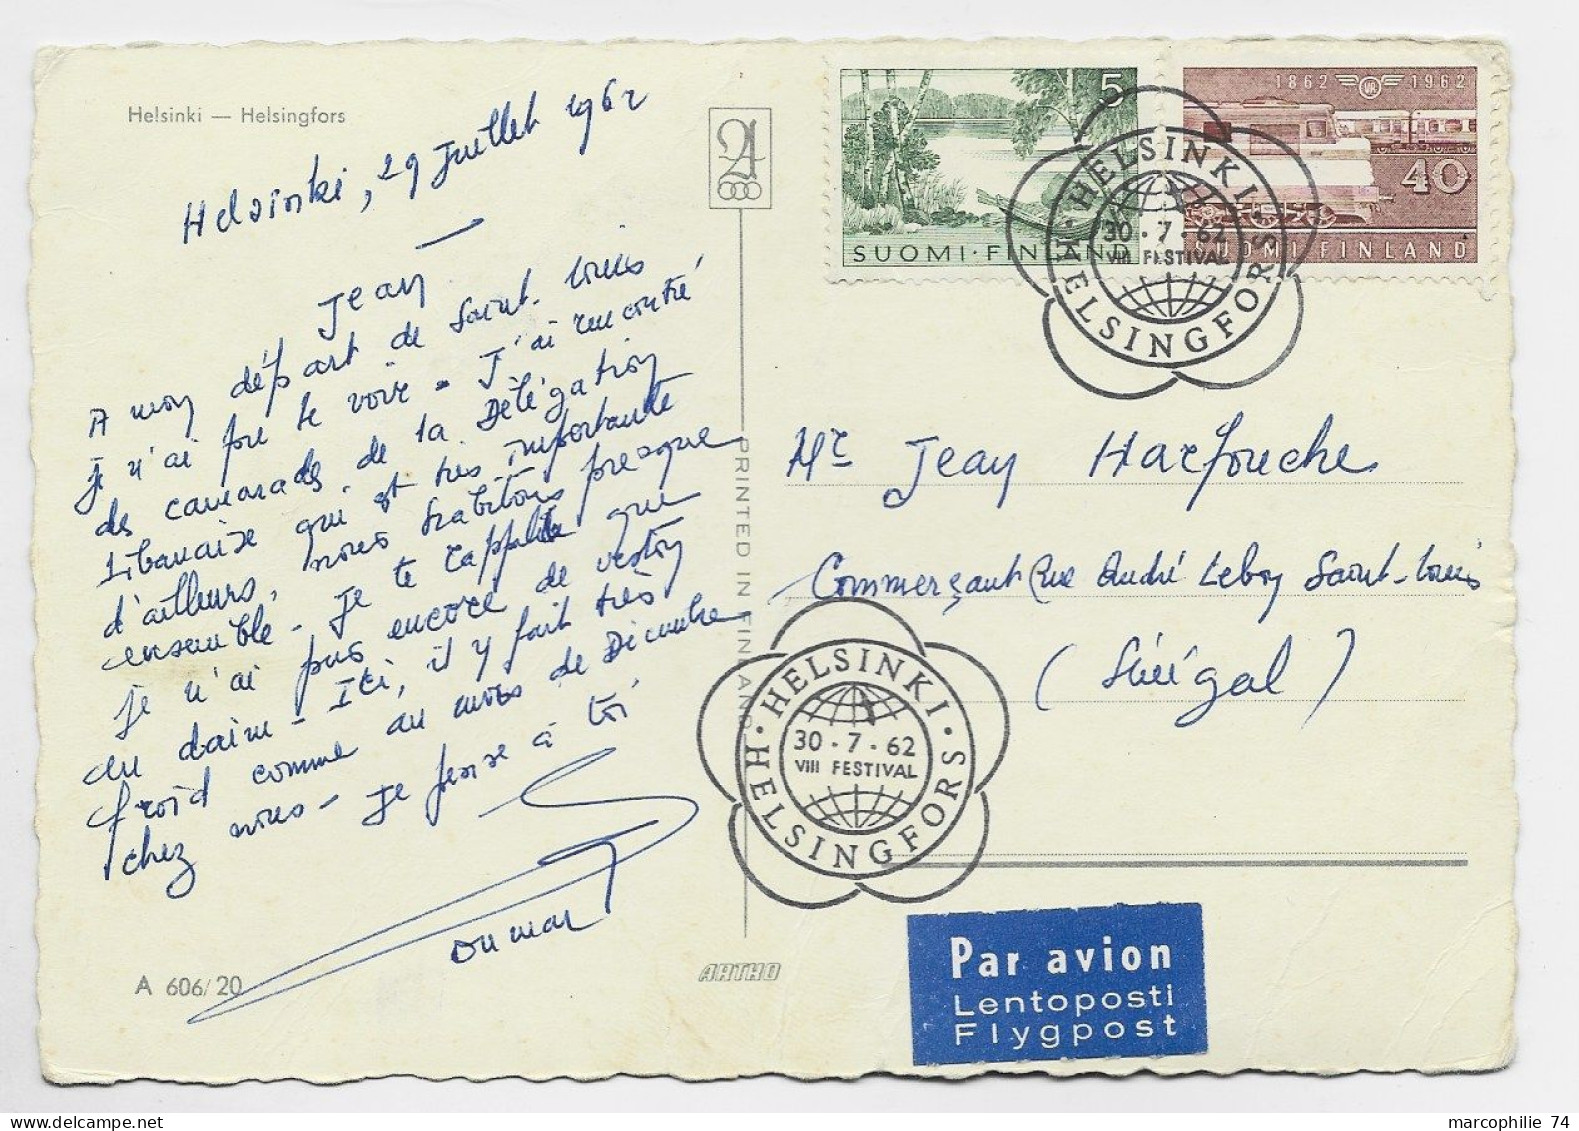 Helsinki — Helsingfors
Helsinki, 29 Juillet 1962
Jean
A mon départ de Saint-Louis
je n'ai pu te voir - J'ai rencontré
des camarades de la Délégation
Libanaise qui est très importante
d'ailleurs, nous habitons presque
ensemble - Je te rappelle que
je n'ai pas encore de veston
en daim - Ici, il y fait très
froid comme au mois de Décembre
chez nous - Je pense à toi
Oumar
A 606/20
PRINTED IN FINLAND
ARTKO
5
SUOMI·FINLAND
1862 VR 1962
40
SUOMI FINLAND
HELSINKI · HELSINGFORS ·
30·7·62
VIII FESTIVAL
Mr Jean Harfouche
Commerçant Rue André Lebon Saint-Louis
(Sénégal)
HELSINKI · HELSINGFORS ·
30·7·62
VIII FESTIVAL
Par avion
Lentoposti
Flygpost
marcophilie 74